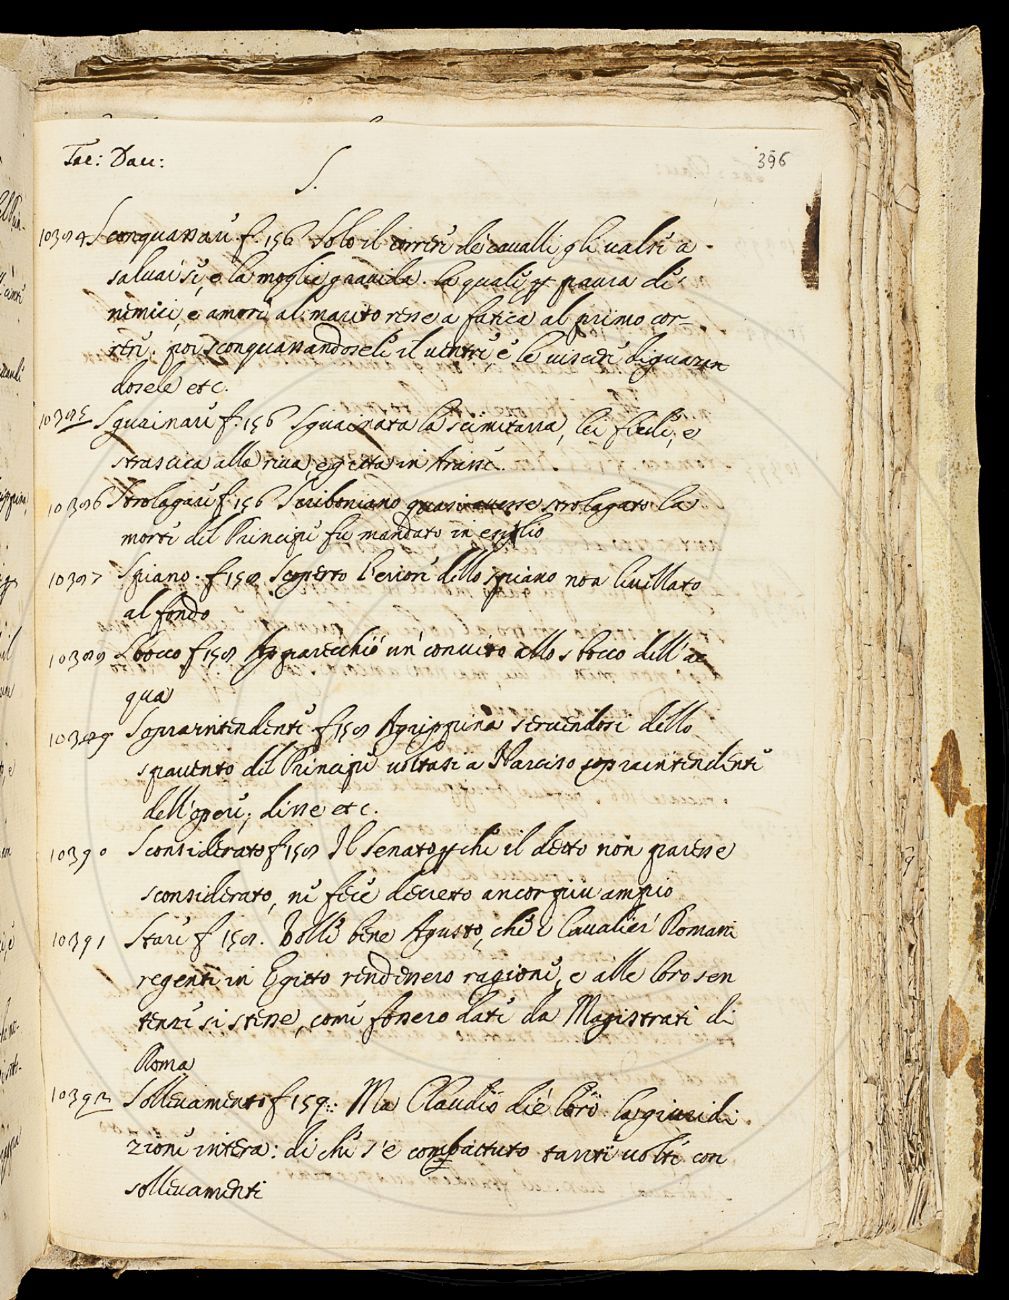 Tac: Dav:
S.
396
10384 Sconquassare f. 156 Solo il correre de cavalli gli valse a
salvarsi, e la moglie gravida. la quale p paura di
nimici, e amore al marito resse a fatica al primo cor-
rere. poi sconquassandosele il ventre, e le viscere diguazzan
dosele etc.
10385 Sguainare f. 156 Sguainata la scimitarra, lei fiede, e
strascica alla riva, e gitta in Arasse.
10386 Strolagare f. 156 Scriboniano quasi avesse strolagato la
morte del Principe fu mandato in esiglio
10387 Spiano. f 158 Scoperto l'errore dello spiano non livellato
al fondo
10388 Sbocco f 158 Apparecchiò un convito allo sbocco dell'ac
qua
10389 Sopraintendente f 158 Agrippina servendosi dello
spavento del Principe voltasi a Narciso sopraintendente
dell'opere, disse etc.
10390 Sconsiderato f 158 Il Senato p che il detto non paresse
sconsiderato, ne fece decreto ancor piu ampio
10391 Stare f 158. Volle bene Agusto, che i Cavalieri Romani
regenti in Egitto rendessero ragione, e alle loro sen
tenze si stesse, come fossero date da Magistrati di
Roma
10392 Sollevamento f 159. Ma Claudio diè loro la giuridi
zione intera: di che s'è combattuto tante volte con
sollevamenti